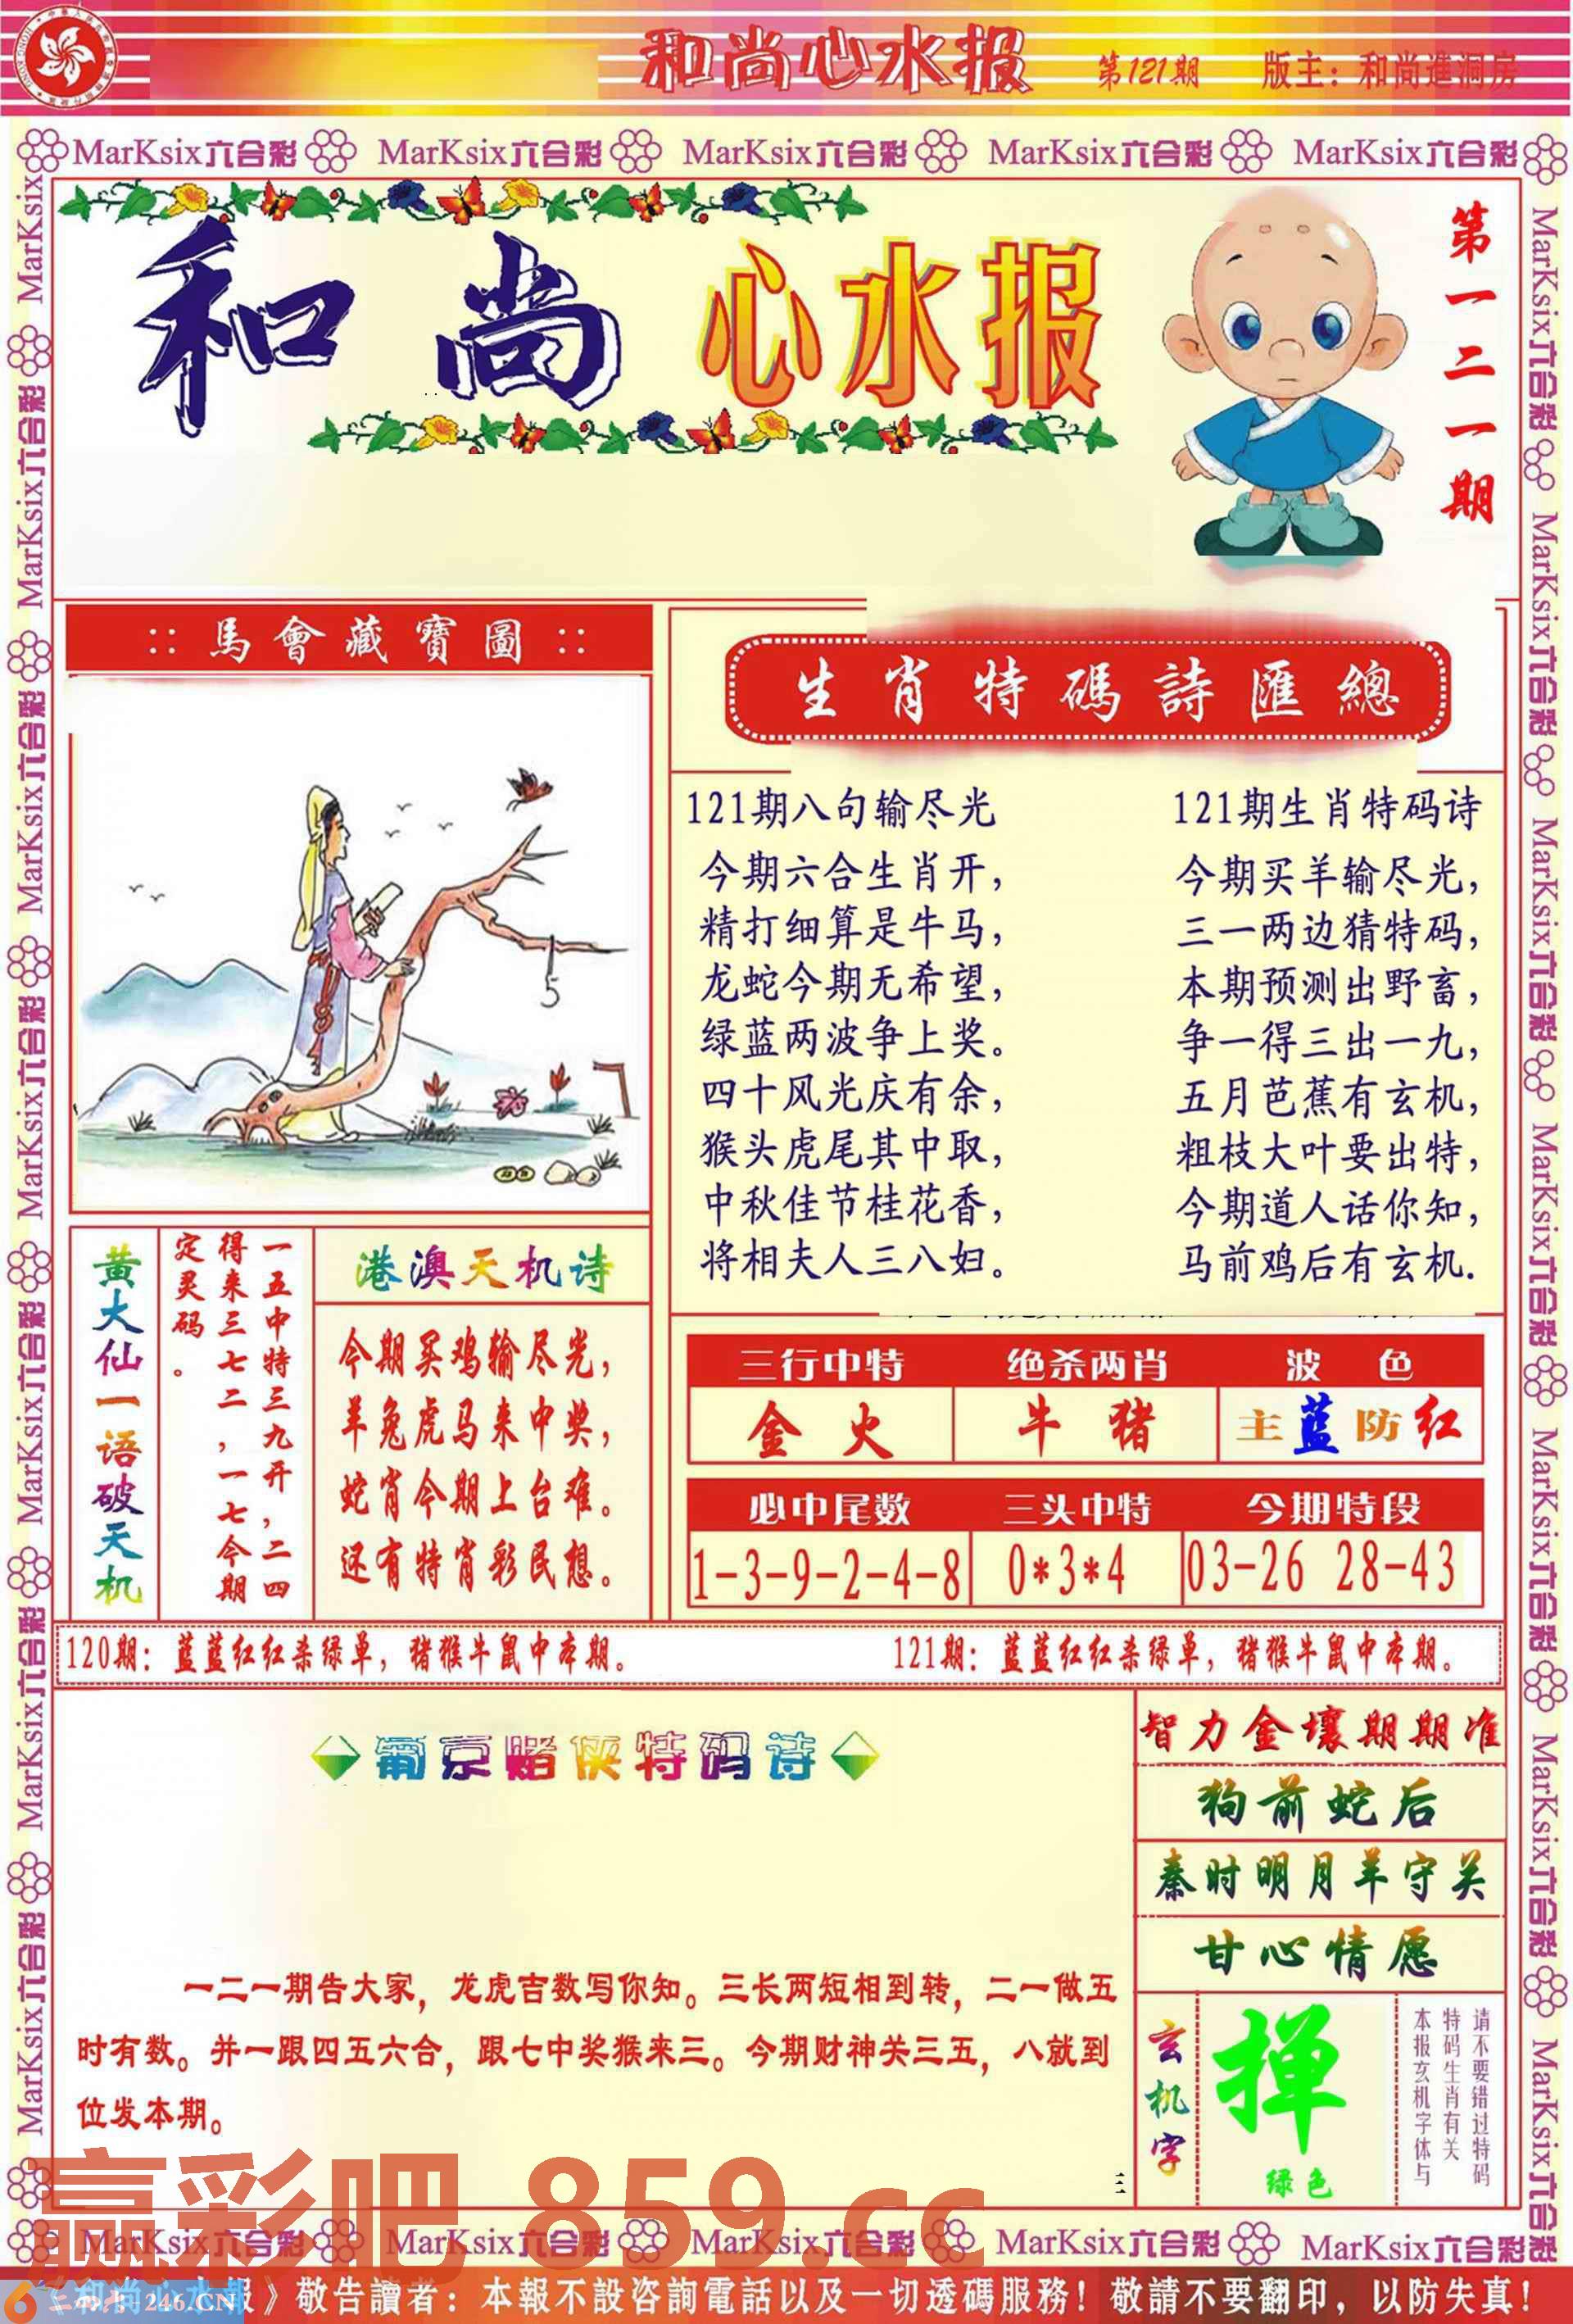 和尚心水报 第121期 版主：和尚進洞房
MarKsix六合彩 MarKsix六合彩 MarKsix六合彩 MarKsix六合彩 MarKsix六合彩
和尚心水报
第一二一期
∷馬會藏寶圖∷
5
生肖特碼詩匯總
121期八句输尽光
今期六合生肖开，
精打细算是牛马，
龙蛇今期无希望，
绿蓝两波争上奖。
四十风光庆有余，
猴头虎尾其中取，
中秋佳节桂花香，
将相夫人三八妇。
121期生肖特码诗
今期买羊输尽光，
三一两边猜特码，
本期预测出野畜，
争一得三出一九，
五月芭蕉有玄机，
粗枝大叶要出特，
今期道人话你知，
马前鸡后有玄机.
黄大仙一语破天机
一五中特三九开，二四
得来三七二，一七今期
定灵码。
港澳天机诗
今期买鸡输尽光，
羊兔虎马来中奖，
蛇肖今期上台难。
还有特肖彩民想。
三行中特 绝杀两肖 波色
金火 牛猪 主蓝防红
必中尾数 三头中特 今期特段
1-3-9-2-4-8 0*3*4 03-26 28-43
120期：蓝蓝红红杀绿单，猪猴牛鼠中本期。
121期：蓝蓝红红杀绿单，猪猴牛鼠中本期。
葡京赌侠特码诗
一二一期告大家，龙虎吉数写你知。三长两短相到转，二一做五
时有数。并一跟四五六合，跟七中奖猴来三。今期财神关三五，八就到
位发本期。
智力金壤期期准
狗前蛇后
秦时明月羊守关
甘心情愿
玄机字
掸
绿色
请不要错过特码
特码生肖有关
本报玄机字体与
三
赢彩吧 859.cc
MarKsix六合彩 MarKsix六合彩 MarKsix六合彩 MarKsix六合彩 MarKsix六合彩
246.CN
《和尚心水报》敬告讀者：本報不設咨詢電話以及一切透碼服務！敬請不要翻印，以防失真！